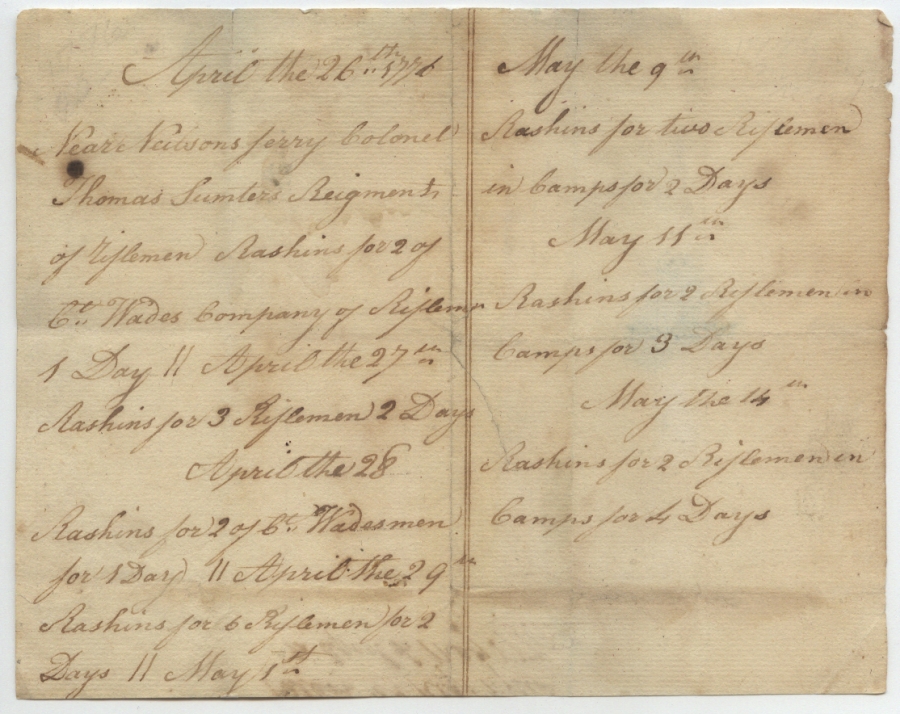 April the 26th 1776
Near Neilsons ferry Colonel
Thomas Sumters Reigment
of riflemen Rashins for 2 of
Ct. Wades Company of Riflemn
1 Day || April the 27th
Rashins for 3 Riflemen 2 Days
April the 28
Rashins for 2 of Ct. Wadesmen
for 1 Day || April the 29th
Rashins for 6 Riflemen for 2
Days || May 1st
May the 9th
Rashins for two Riflemen
in Camps for 2 Days
May 11th
Rashins for 2 Riflemen in
Camps for 3 Days
May the 14th
Rashins for 2 Riflemen in
Camps for 4 Days